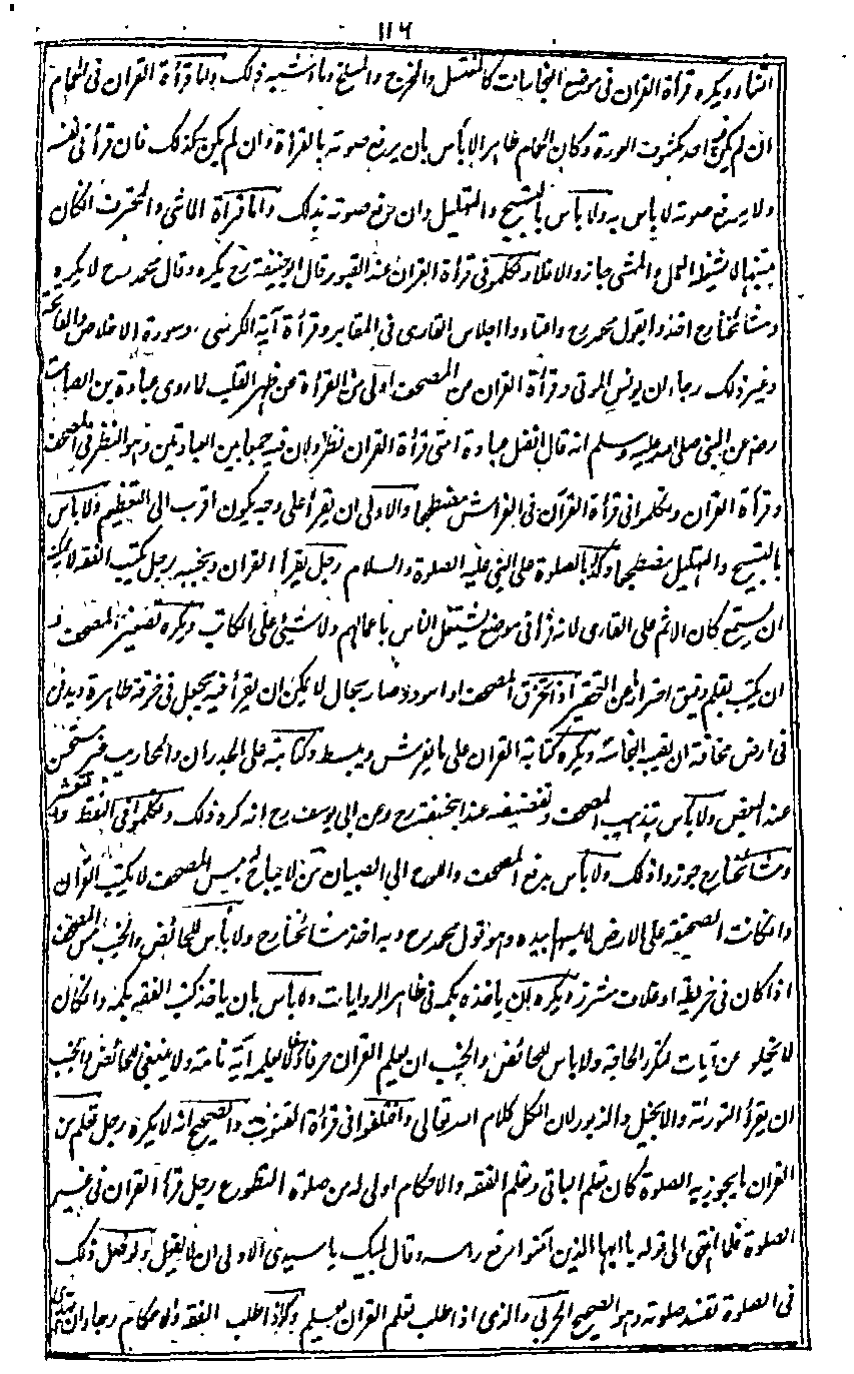 ١١٦
النار ويكره قرأة القران فى موضع النجاسات كالمغتسل والمخرج والمسلخ وما اشبه ذلك واما قرأة القران فى الحمام
ان لم يكن فيه احد مكشوف العورة وكان الحمام طاهرا لا بأس بان يرفع صوته بالقرأة وان لم يكن كذلك فان قرأ فى نفسه
ولا يرفع صوته لا بأس به ولا بأس بالتسبيح والتهليل وان رفع صوته بذلك واما قرأة الماشى والمحترف انكان
منتبها لا يشغله العمل والمشى جاز والا فلا وتكلموا فى قرأة القران عند القبور قال ابوحنيفة رح يكره وقال محمد رح لا يكره
ومشائخنا رح اخذوا بقول محمد رح واعتادوا اجلاس القارى فى المقابر وقرأة آية الكرسى وسورة الاخلاص والفاتحة
وغير ذلك رجاء ان يونس الموتى وقرأة القران من المصحف اولى من القرأة عن ظهر القلب لما روى عبادة بن الصامت
رضه عن النبى صلى الله عليه وسلم انه قال افضل عبادة امتى قرأة القران نظرا ولان فيه جمعا بين العبادتين وهو النظر فى المصحف
وقرأة القران وتكلموا فى قرأة القران فى الفراش مضطجعا والاولى ان يقرأ على وجه يكون اقرب الى التعظيم ولا بأس
بالتسبيح والتهليل مضطجعا وكذا بالصلوة على النبى عليه الصلوة والسلام رجل يقرأ القران وبجنبه رجل يكتب الفقه لا يمكنه
ان يستمع كان الاثم على القارى لانه قرأ فى موضع يشتغل الناس باعمالهم ولا شئ على الكاتب ويكره تصغير المصحف و
ان يكتب بقلم دقيق احترازا عن التحقير اذا تخرق المصحف او اسود وصار بحال لا يمكن ان يقرأ فيه يجعل فى خرقة طاهرة ويدفن
فى ارض مخافة ان يصيبه النجاسة ويكره كتابة القران على ما يفرش ويبسط وكتابته على الجدران والمحاريب غير مستحسن
عند البعض ولا بأس بتذهيب المصحف وتفضيضه عند ابيحنيفة رح وعن ابى يوسف رح انه كره ذلك وتكلموا فى النقط والتعشير
ومشائخنا رح جوزوا ذلك ولا بأس بدفع المصحف واللوح الى الصبيان ثم لا يباح مس المصحف لا يكتب القران
وانكانت الصحيفة على الارض لا يمسها بيده وهو قول محمد رح وبه اخذ مشائخنا رح ولا بأس للحائض والجنب مس المصحف
اذا كان فى خريطة او غلاف مشرز ويكره ان ياخذه بكمه فى ظاهر الروايات ولا بأس بان ياخذ كتب الفقه بكمه وانكان
لا يخلو عن آيات لتكرر الحاجة ولا بأس للحائض والجنب ان يعلم القران حرفا حرفا ولا يعلمه آية تامة ولا ينبغى للحائض والجنب
ان يقرأ التورية والانجيل والزبور لان الكل كلام الله تعالى واختلفوا فى قرأة القنوت والصحيح انه لا يكره رجل تعلم من
القران ما يجوز به الصلوة كان تعلم الباقى وتعلم الفقه والاحكام اولى له من صلوة التطوع رجل قرأ القران فى غير
الصلوة فلما انتهى الى قوله يا ايها الذين آمنوا رفع راسه وقال لبيك يا سيدى الاولى ان لا يفعل ولو فعل ذلك
فى الصلوة تفسد صلوته وهو الصحيح الحربى والذمى اذا طلب تعلم القران يعلم وكذا اذا طلب الفقه والاحكام رجاء ان يهتدى